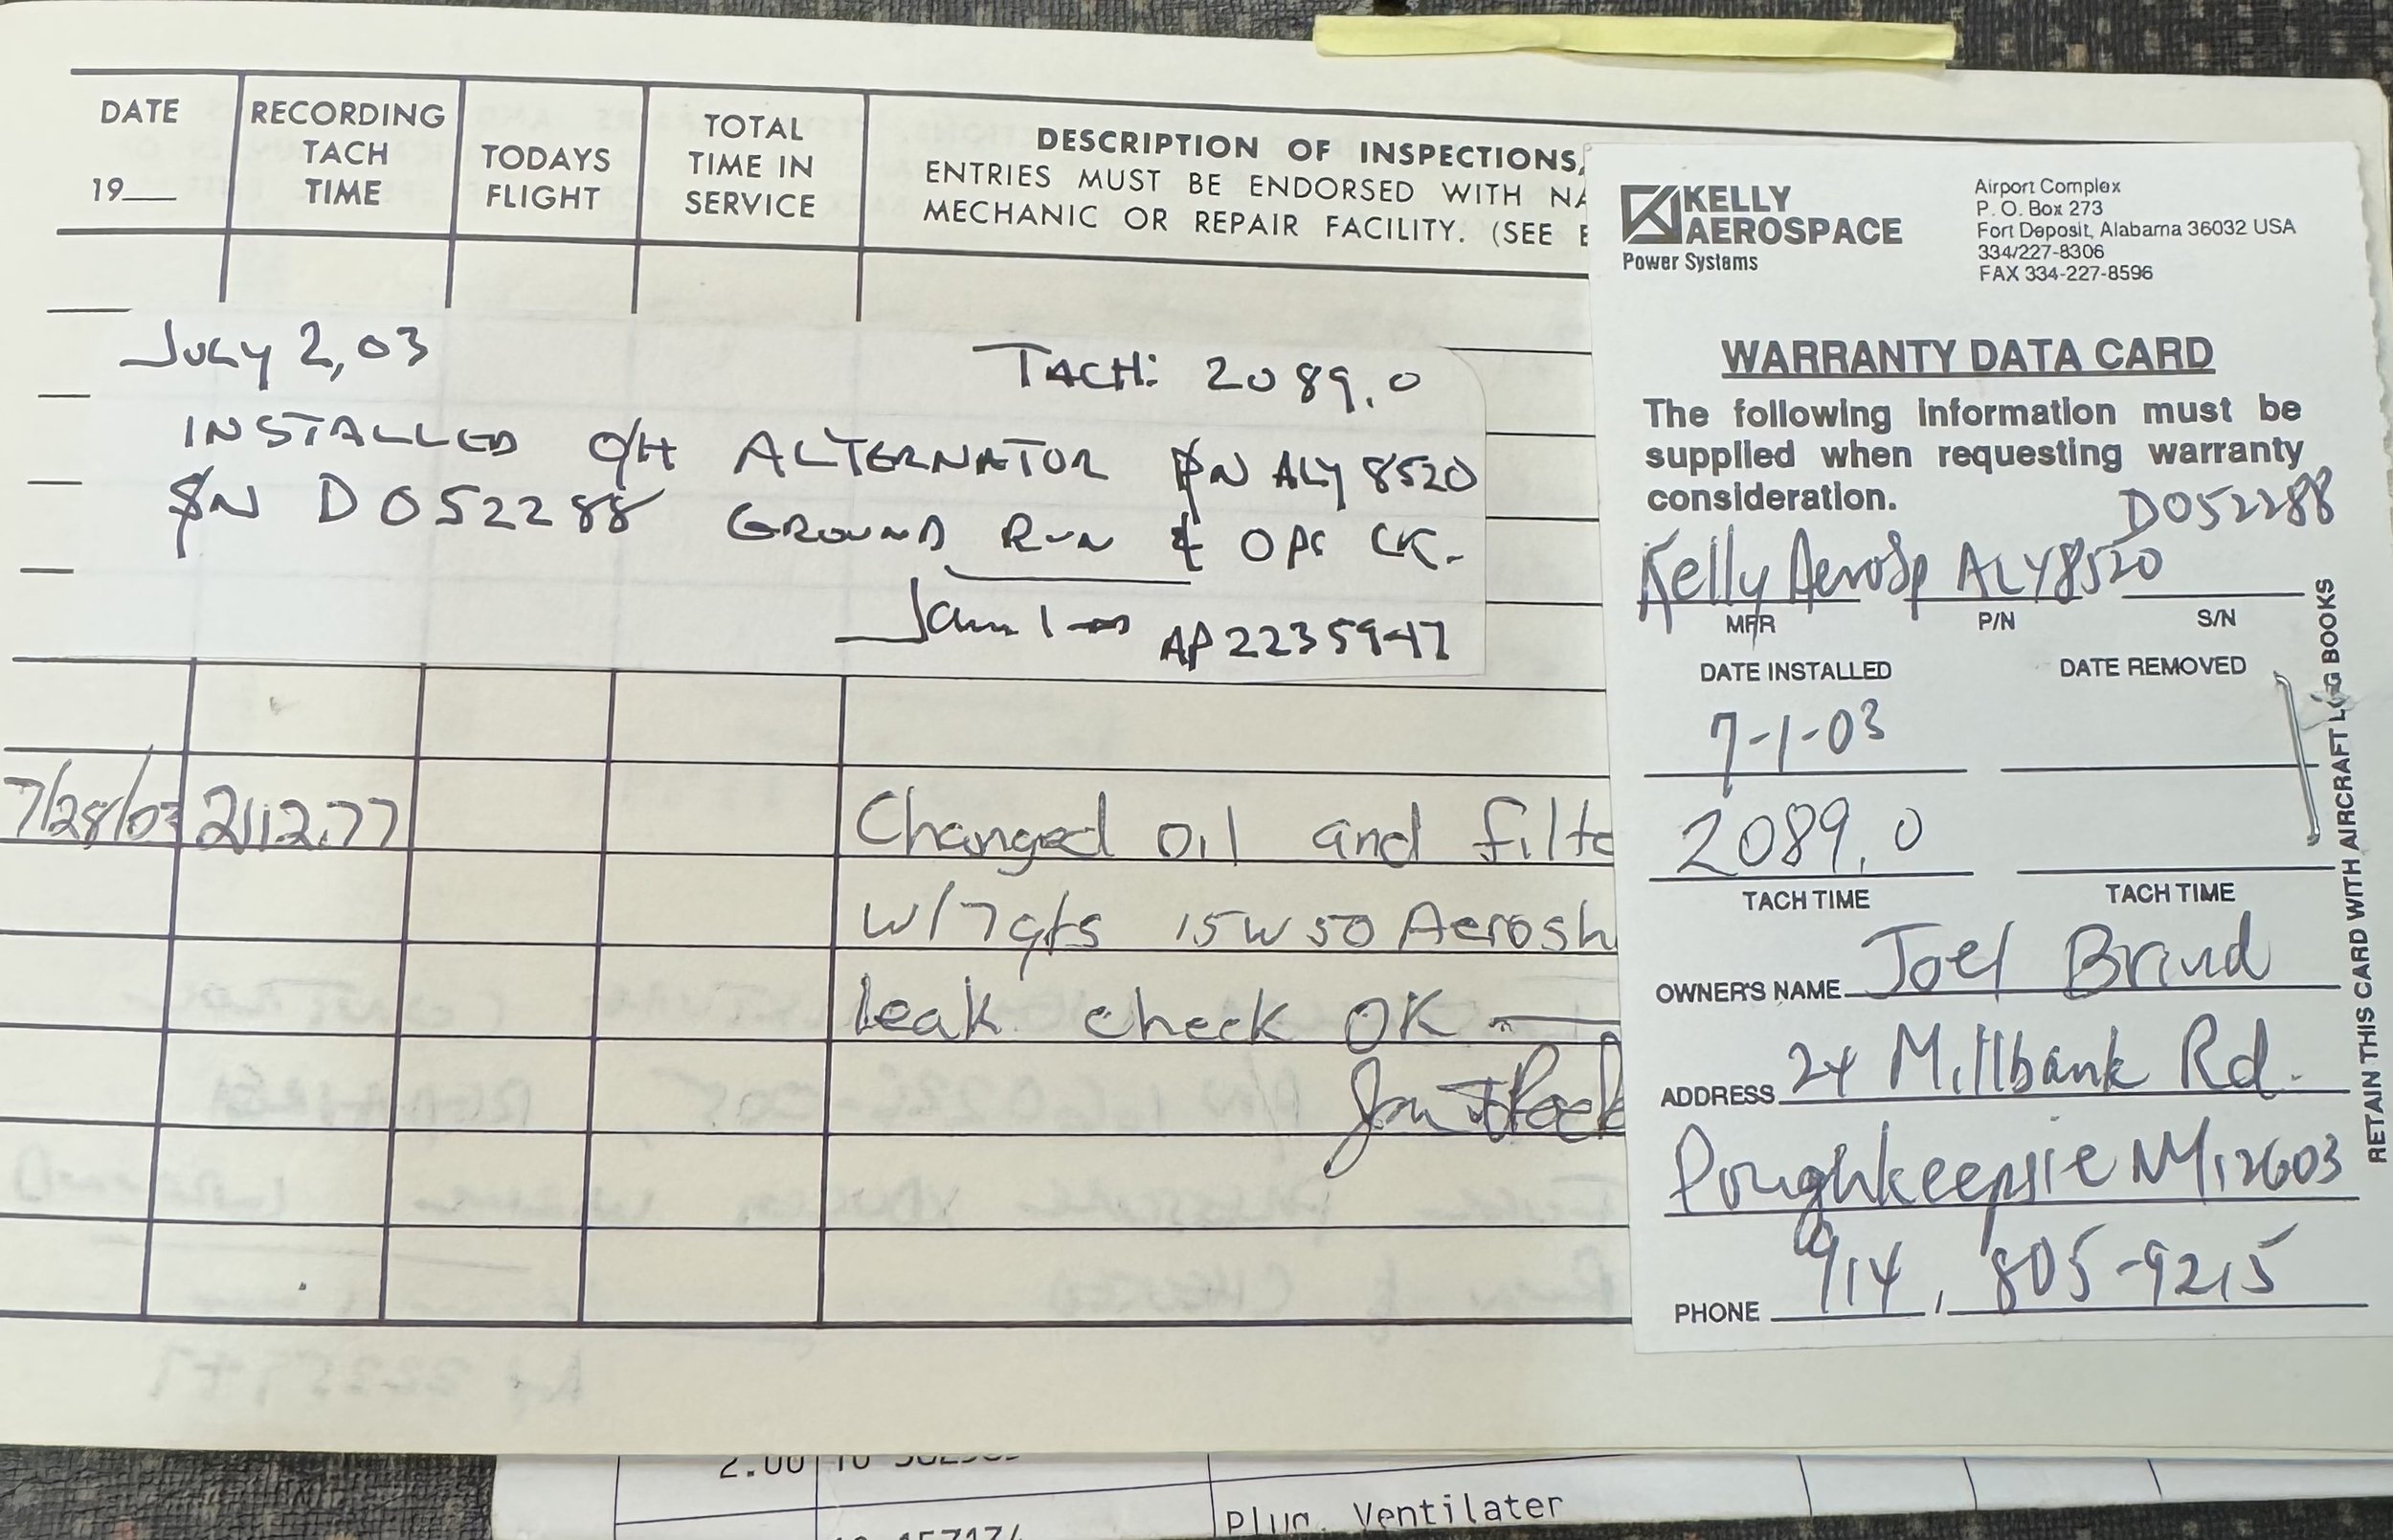 DATE
19__
RECORDING
TACH
TIME
TODAYS
FLIGHT
TOTAL
TIME IN
SERVICE
DESCRIPTION OF INSPECTIONS,
ENTRIES MUST BE ENDORSED WITH NA
MECHANIC OR REPAIR FACILITY. (SEE B
July 2, 03 TACH: 2089.0
INSTALLED O/H ALTERNATOR P/N ALY 8520
S/N D052288 GROUND RUN & OPS CK.
AP 2235947
7/28/03 2112.77 Changed oil and filte
w/7qts 15W50 Aerosh
leak check OK
KELLY
AEROSPACE
Power Systems
Airport Complex
P. O. Box 273
Fort Deposit, Alabama 36032 USA
334/227-8306
FAX 334-227-8596
WARRANTY DATA CARD
The following information must be
supplied when requesting warranty
consideration.
D052288
Kelly Aerosp ALY8520
MFR P/N S/N
DATE INSTALLED DATE REMOVED
7-1-03
2089.0
TACH TIME TACH TIME
OWNER'S NAME Joel Brind
ADDRESS 24 Millbank Rd.
Poughkeepsie NY 12603
PHONE 914, 805-9215
RETAIN THIS CARD WITH AIRCRAFT LOG BOOKS
2.00
Plug, Ventilater